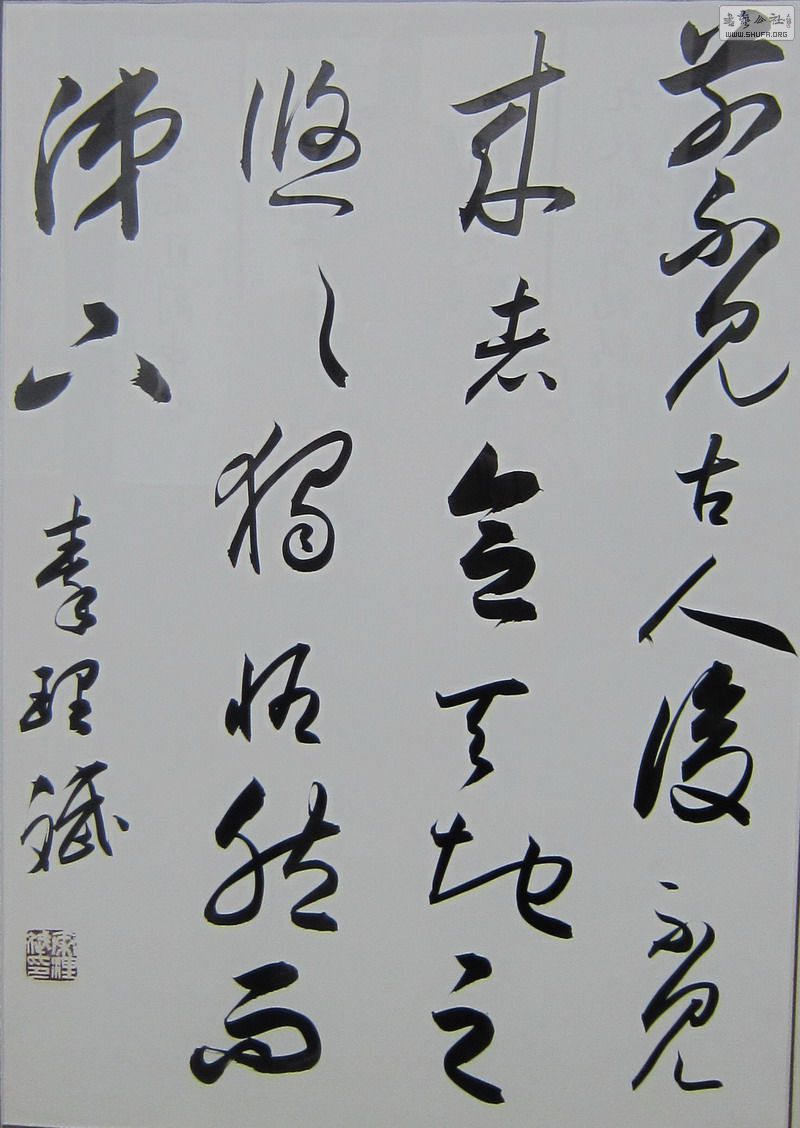 前不見古人後不見
來者念天地之
悠々獨愴然而
涕下
秦理斌
书艺公社
WWW.SHUFA.ORG